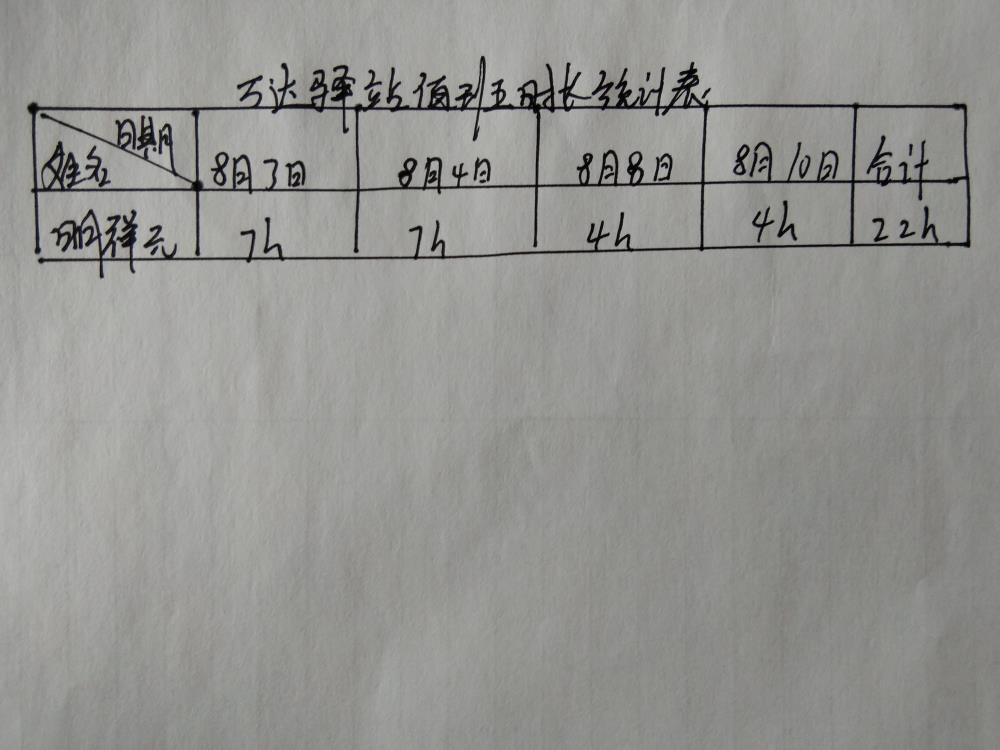 万达驿站值班时长统计表
日期
姓名 8月3日 8月4日 8月8日 8月10日 合计
明祥元 7h 7h 4h 4h 22h